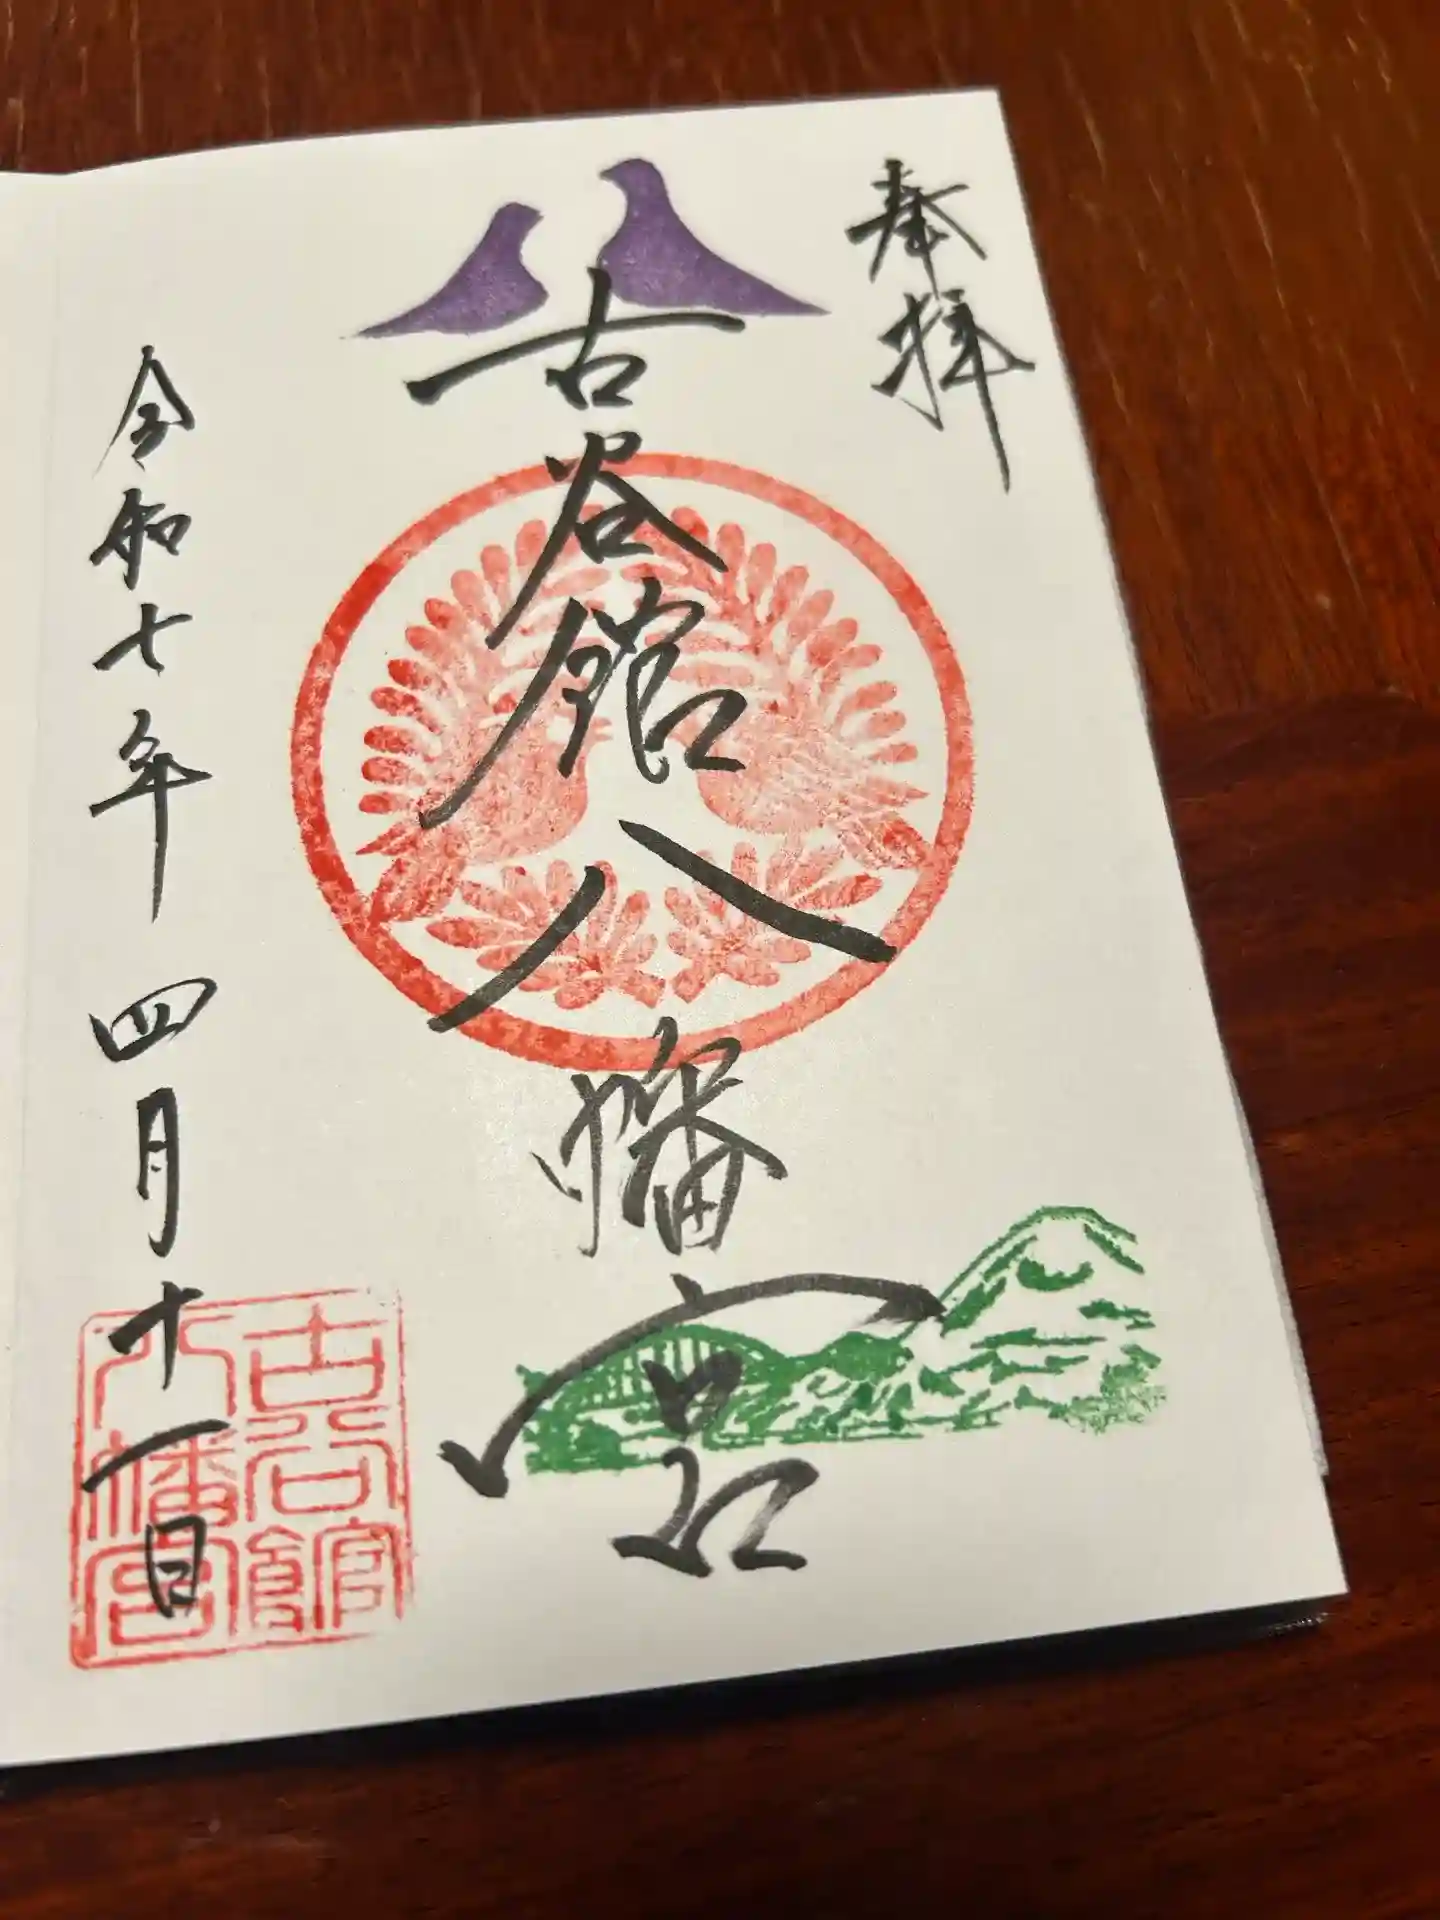 奉拝
古谷館八幡宮
令和七年 四月十一日
古谷館
八幡宮